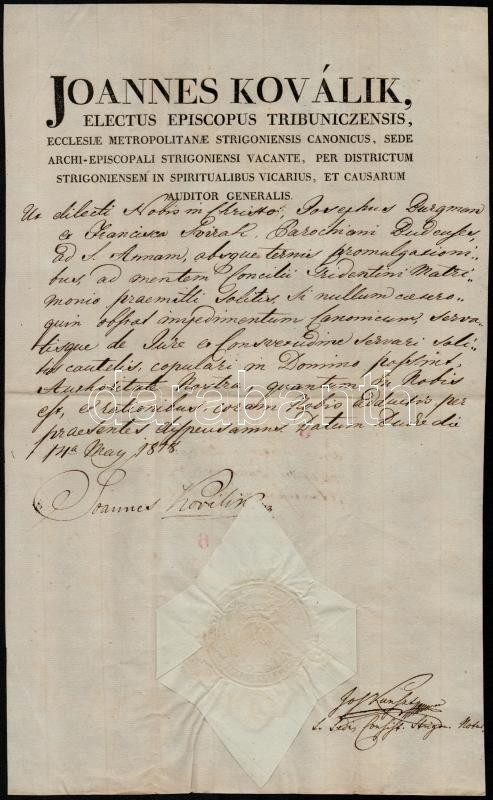 JOANNES KOVÁLIK,
ELECTUS EPISCOPUS TRIBUNICZENSIS,
ECCLESIÆ METROPOLITANÆ STRIGONIENSIS CANONICUS, SEDE
ARCHI-EPISCOPALI STRIGONIENSI VACANTE, PER DISTRICTUM
STRIGONIENSEM IN SPIRITUALIBUS VICARIUS, ET CAUSARUM
AUDITOR GENERALIS.
Ut dilecti Nobis in Christo: Josephus Burgman
et Francisca Svirak, Parochiani Budenses,
ad S. Annam, absque ternis promulgationi-
bus, ad mentem Concilii Tridentini Matri-
monio praemitti solitis, si nullum caetero-
quin obstat impedimentum canonicum, serva-
tisque de Jure et Consvetudine servari soli-
tis cautelis, copulari in Domino possint,
Authoritate Nostra, quantum in Nobis
est, e rationibus coram Nobis per
praesentes dispensamus. Datum Budae die
14a May 18
Joannes Kovalik
S. Sedis Consist. Strigon. Notar.
darabanth